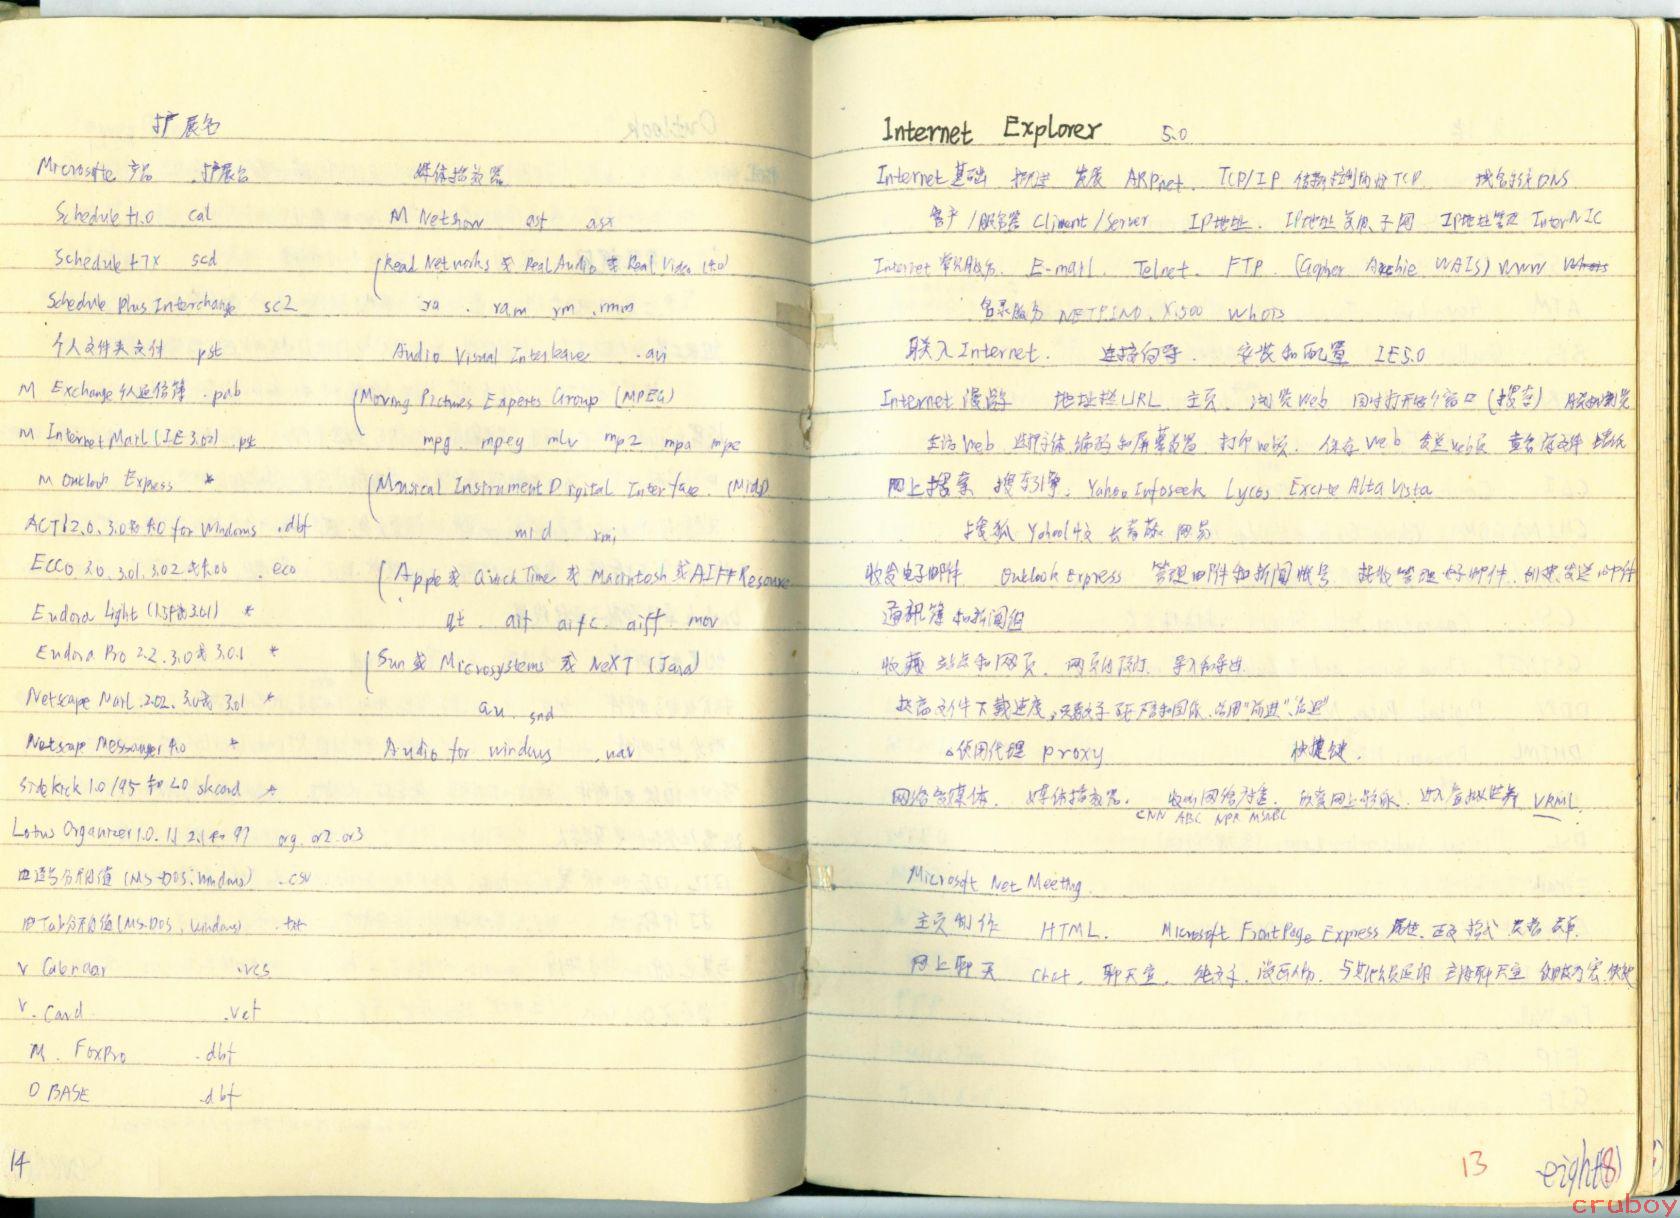 扩展名
Microsofte 产品 .扩展名
Schedule +1.0 cal
Schedule +7x scd
Schedule Plus Interchange sc2
个人文件夹文件 pst
M Exchange 个人通信簿 .pab
M Internet Mail (IE 3.02) .pst
M Outlook Express *
ACT! 2.0. 3.0和4.0 for Windows .dbf
ECCO 3.0. 3.01. 3.02 或4.00 .eco
Eudora Light (1.5和3.01) *
Eudora Pro 2.2. 3.0或 3.0.1 *
Netscape Mail .2.02. 3.0或 3.01 *
Netscape Messanger 4.0 *
Sidekick 1.0/95 和 2.0 skcard *
Lotus Organizer 1.0. 1.1 2.1和 97 org. or2. or3
由逗号分开的值 (MS-DOS. Windows) .csv
由Tab分开的值 (MS-DOS, Windows) .txt
v Calendar .vcs
v. Card .vcf
M. FoxPro .dbf
D BASE .dbf
14
媒体播放器
M Netshow asf asx
Read Networks 或 Real Audio 或 Real Video (4.0)
.ra . ram .rm .rmm
Audio Visual Interleave .avi
Moving Pictures Experts Group (MPEG)
mpg. mpeg mlv mp2 mpa mpe
Musical Instrument Digital Interface. (Midi)
mid rmi
Apple 或 Quick Time 或 Macintosh 或 AIFF Resource
qt . aif aifc . aiff . mov
Sun 或 Microsystems 或 NeXT (Java)
au . snd
Audio for windows .wav
Internet Explorer 5.0
Internet 基础 概述 发展 ARPnet. TCP/IP 传输控制协议TCP 域名系统DNS
客户/服务器 Climent/Server IP地址. IP地址 子网 IP地址管理 InterNIC
Internet 常见服务. E-mail. Telnet. FTP. (Gopher Archie WAIS) WWW
名录服务 NETFIND. X.500 WhoIs
联入 Internet. 连接向导. 安装和配置 IE5.0
Internet 漫游 地址栏URL. 主页. 浏览Web 同时打开多个窗口 (搜索) 脱机浏览
Web 选择字体.编码和屏幕设置 打印web页. 保存Web 发送web页
网上搜索 搜索引擎: Yahoo Infoseek Lycos Excite Alta Vista
搜狐 Yahoo!中文 网易
收发电子邮件 Outlook Express 管理邮件和新闻帐号 接收管理好邮件. 创建.发送邮件
通讯簿和新闻组
收藏 站点和网页. 网页的预订. 导入和导出
提高文件下载速度, "前进""后退"
。使用代理 proxy 快捷键.
网络多媒体. 媒体播放器. 收听网络广播. 欣赏网上 进入虚拟世界 VRML
CNN ABC NPR MSNBC
Microsoft Net Meeting.
主页制作 HTML. Microsoft FrontPage Express 属性. 正文格式. 表格 表单.
网上聊天 Chat. 聊天室. 纯文字. 漫画人物. 主持聊天室
13
eight(8)
cruboy